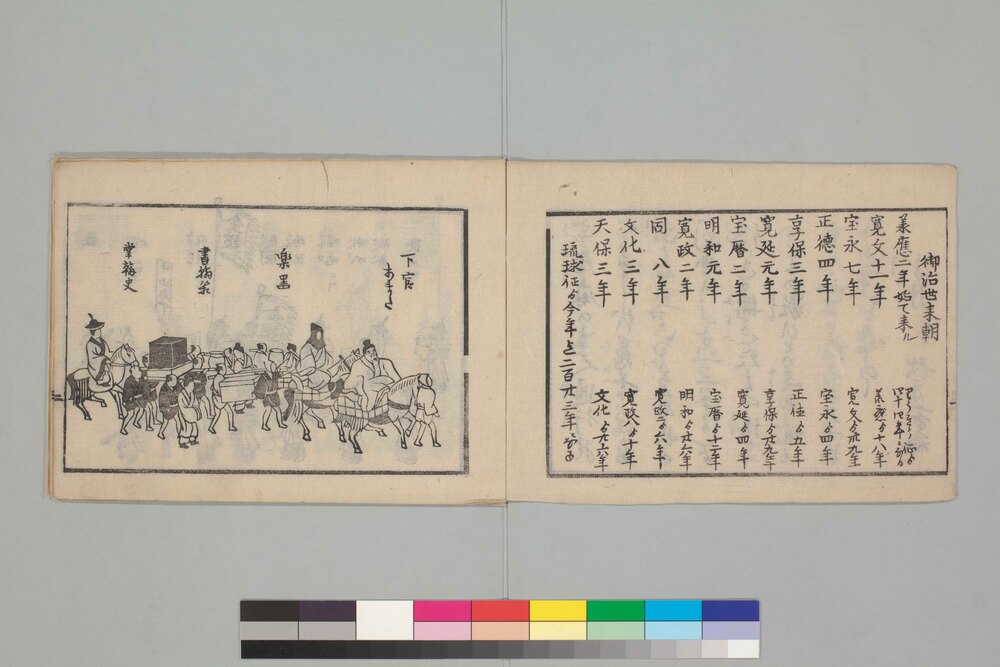 御治世来朝
承應二年始て来ル
四十四年
寛文十一年
承應より十八年
宝永七年
寛文より卅九年
正徳四年
宝永より四年
享保三年
正徳より五年
寛延元年
享保より廿九年
宝暦二年
寛延より四年
明和元年
宝暦より十二年
寛政二年
明和より廿六年
同八年
寛政二より六年
文化三年
寛政八より十年
天保三年
文化より廿六年
琉球征より今年迄二百廿三年
下官
楽器
書翰
掌翰史